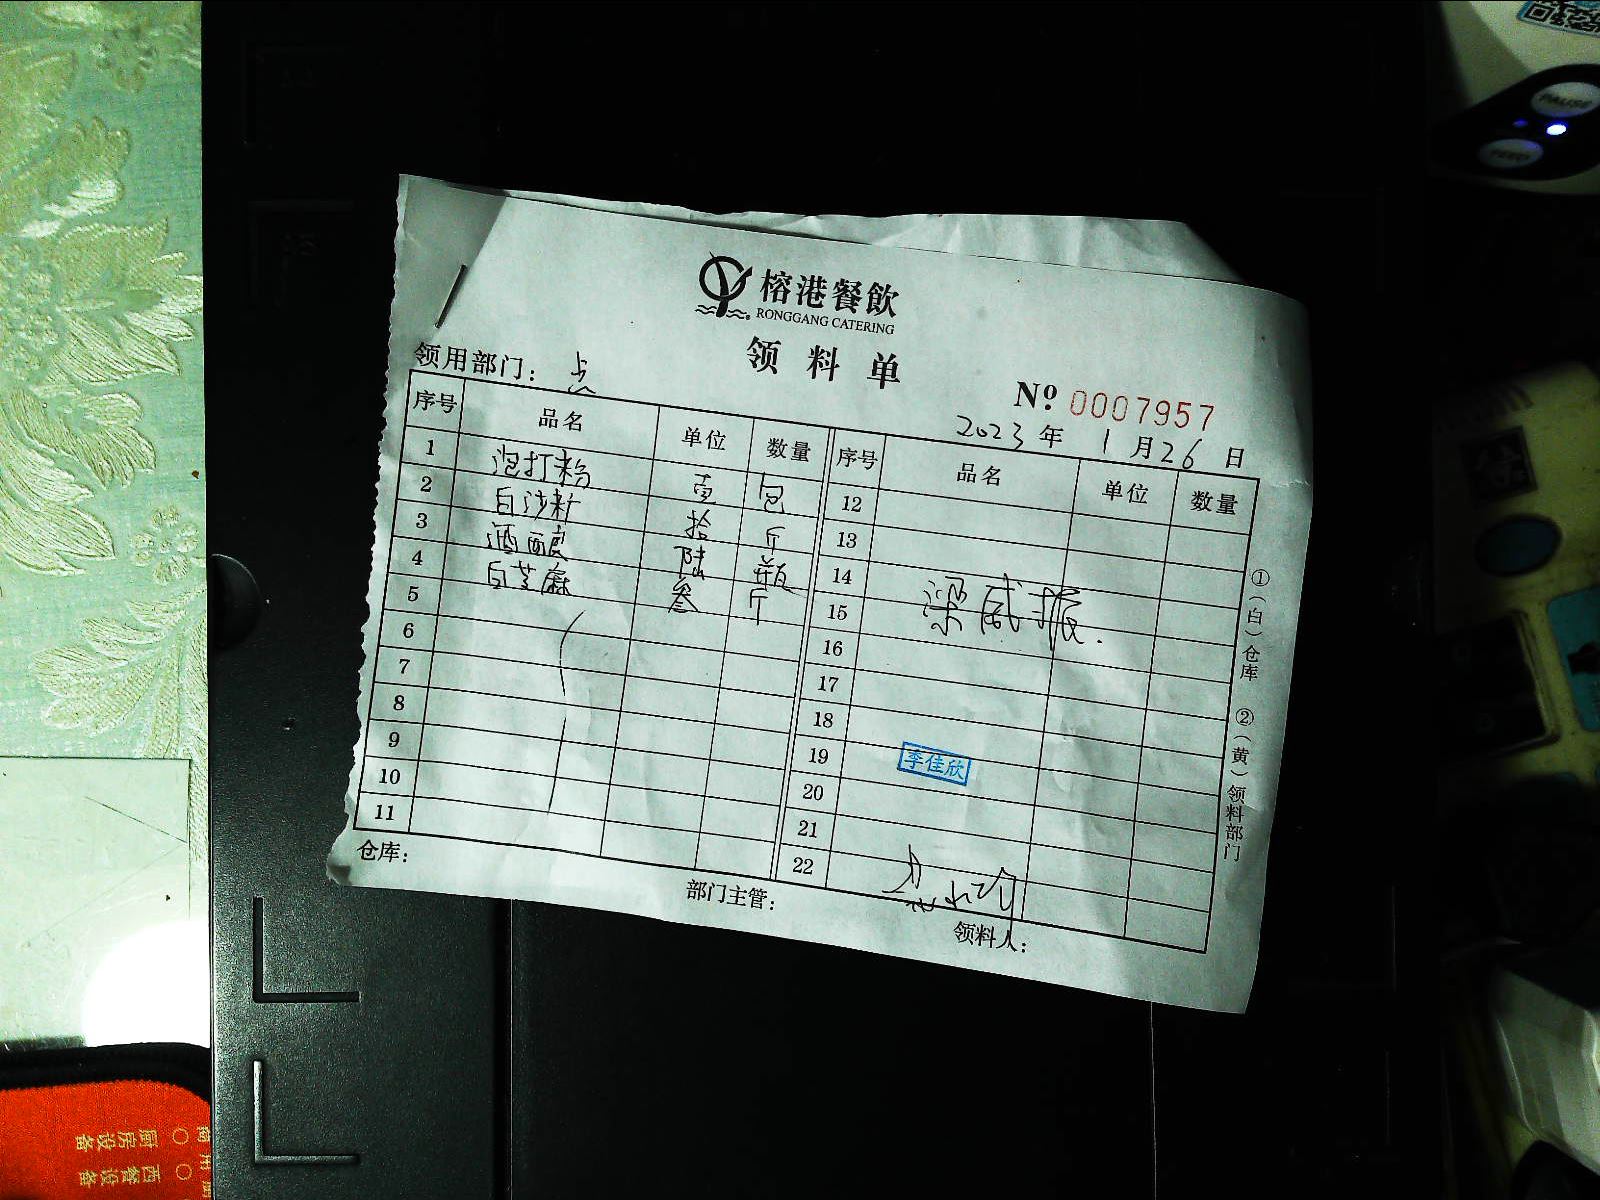 榕港餐飲
RONGGANG CATERING
领料单
领用部门： 点
Nº 0007957
2023 年 1 月 26 日
序号 品名 单位 数量 序号 品名 单位 数量
1 泡打粉 壹 包 12
2 白沙 拾 斤 13
3 酒酿 陆 瓶 14
4 白芝麻 叁 斤 15 梁威振
5 16
6 17
7 18
8 19 李佳欣
9 20
10 21
11 22
仓库： 部门主管： 领料人：
①（白）仓库 ②（黄）领料部门
PAUSE
FEED
厨房设备
西餐设备